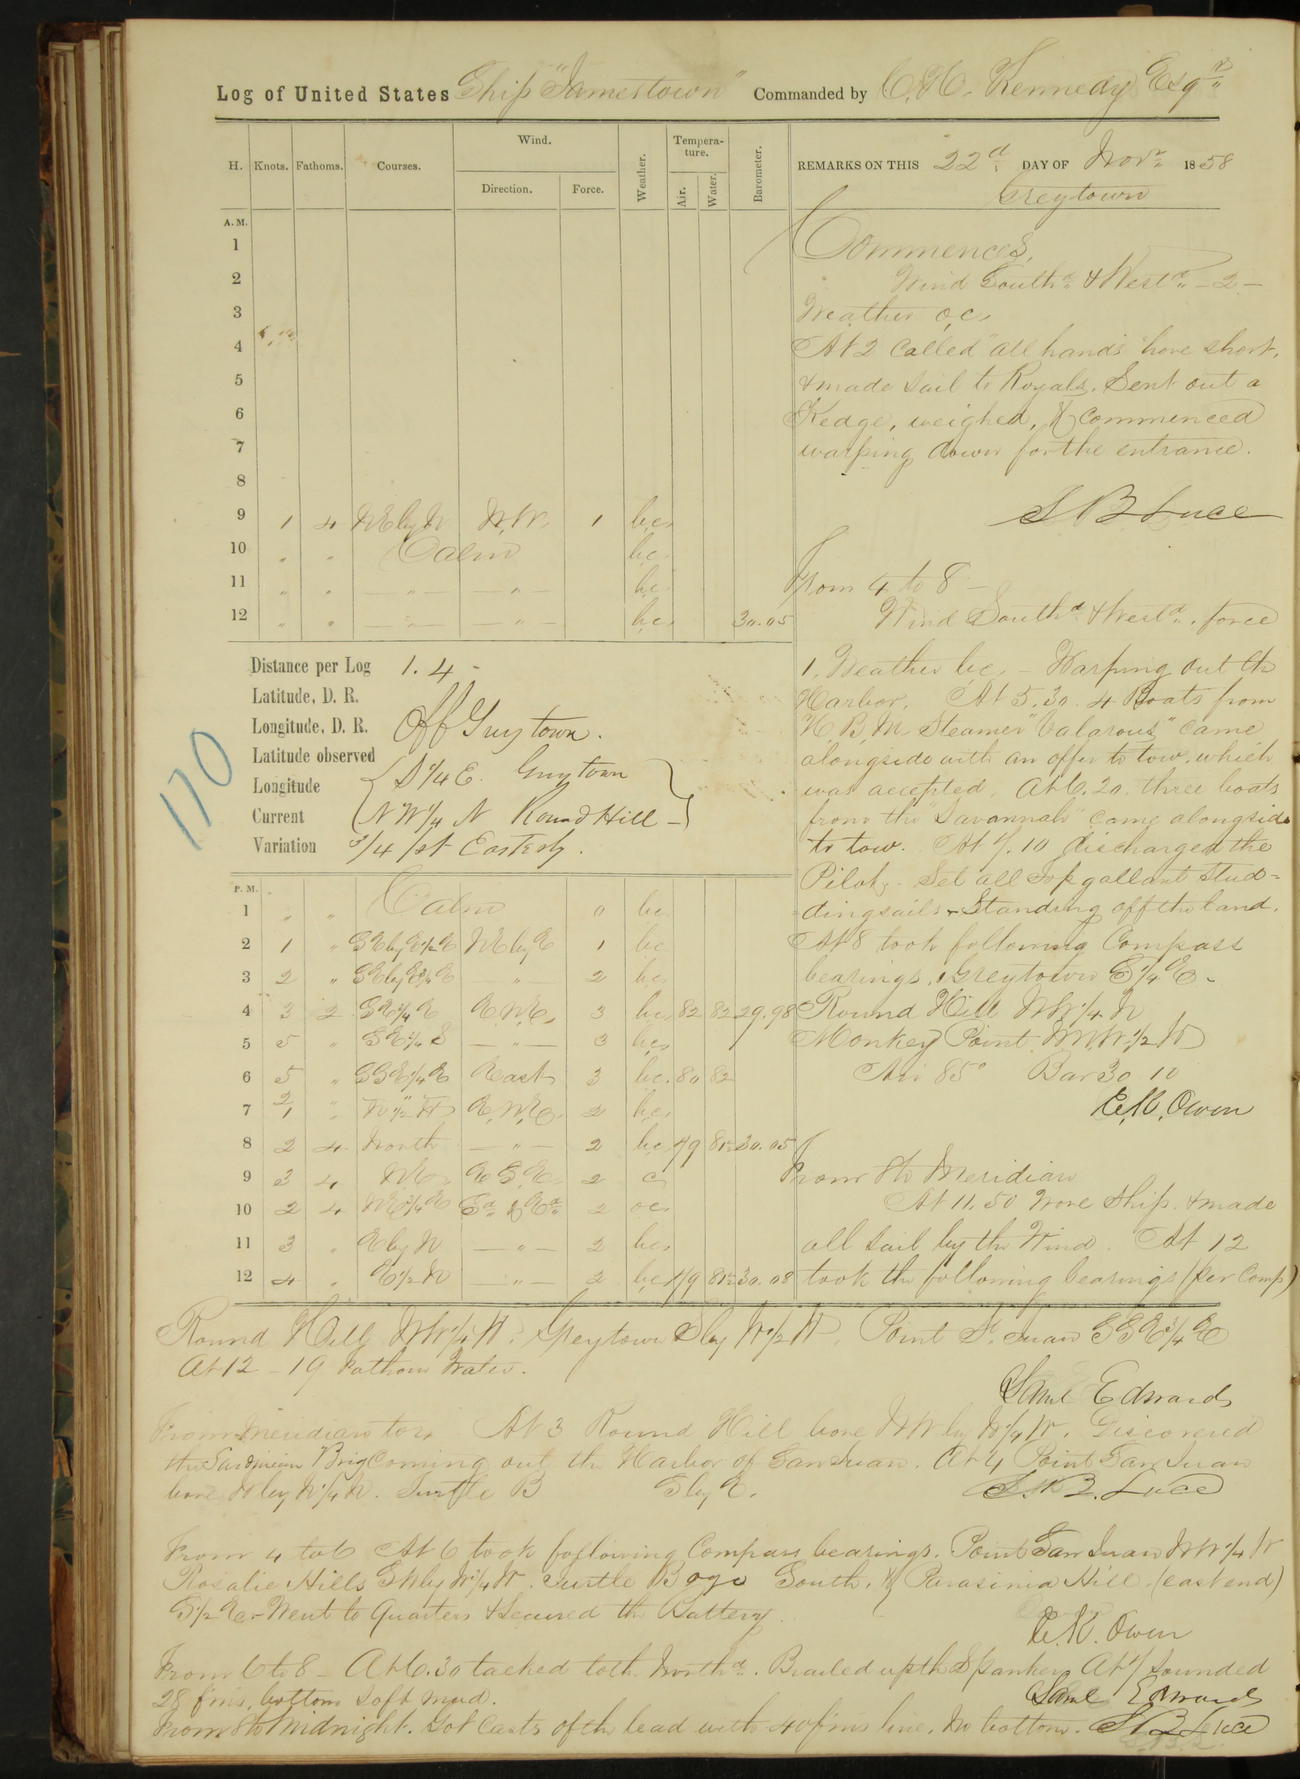 Log of United States Ship "Jamestown" Commanded by C. H. Kennedy Esqr
H. Knots. Fathoms. Courses. Wind. Direction. Force. Weather. Temperature. Air. Water. Barometer.
REMARKS ON THIS 22d DAY OF Novr 1858
Greytown
A. M.
1
2
3
4
5
6
7
8
9 1 4 NE by N N.W. 1 bc
10 " " Calm bc
11 " " — " — — " — bc
12 " " — " — — " — bc 30.05
Distance per Log 1.4 -
Latitude, D. R.
Longitude, D. R. Off Greytown.
Latitude observed
Longitude S 1/4 E. Greytown
Current NW 1/4 N Round Hill
Variation 3/4 pt Easterly.
170
P. M.
1 " " Calm 0 bc
2 1 " SE by E 1/2 E NE by E 1 bc
3 2 " SE by E 3/4 E — " — 2 bc
4 3 2 SE 1/4 E E.N.E. 3 bc 82 82 29.98
5 5 " SE 1/4 S — " — 3 bc
6 5 " SSE 1/4 E East 3 bc 80 82
7 2/1 " E.N.E. 2 bc
8 2 4 North — " — 2 bc 79 81 1/2 30.05
9 3 4 NE E S E 2 c
10 2 4 NE 3/4 E Sd & Ed 2 oc
11 3 " E by N — " — 2 bc
12 4 " E 1/2 N — " — 2 bc 79 81 1/2 30.08
Commences,
Wind Southd & Westd – 2 –
Weather o,c,
At 2 called "all hands" hove short,
& made sail to Royals. Sent out a
Kedge, weighed, & commenced
warping down for the entrance.
S B Luce
From 4 to 8 –
Wind Southd & Westd, force
1, Weather bc, – Warping out the
Harbor. At 5.30. 4 Boats from
H. B. M. Steamer "Valarous" came
alongside with an offer to tow, which
was accepted. At 6.20. three boats
from the "Savannah" came alongside
to tow. At 7.10 discharged the
Pilot. Set all top gallant stud=
dingsails – Standing off the land.
At 8 took following Compass
bearings, Greytown S 3/4 E –
Round Hill NW 1/4 N
Monkey Point NNW 1/2 W
Air 85° Bar 30.10
E. K. Owen
From 8 to Meridian
At 11.50 Wore Ship & made
all sail by the Wind. At 12
took the following bearings (per Comp)
Round Hill NW 1/4 W. Greytown S by W 1/2 W. Point St. Juan SSE 3/4 E
At 12 – 19 Fathom Water.
Saml Edwards
From Meridian to 4 At 3 Round Hill bore NW by W 1/4 W. Discovered
the Sardinian Brig Coming out the Harbor of San Juan. At 4 Point San Juan
bore W by N 1/4 N. Turtle B S by E.
S. B. Luce
From 4 to 6 At 6 took following Compass bearings. Point San Juan NW 1/4 W
Rosalie Hills SW by W 1/4 W. Turtle Bogo South, & Parasinia Hill (east end)
S 1/2 E – Went to Quarters & Secured the Battery.
E. K. Owen
From 6 to 8 – At 6.30 tacked to th Northd. Brailed up th Spanker. At 7 sounded
28 fms, bottom soft mud.
Saml Edwards
From 8 to Midnight. Got Casts of th lead with 40 fms line, no bottom. S B Luce